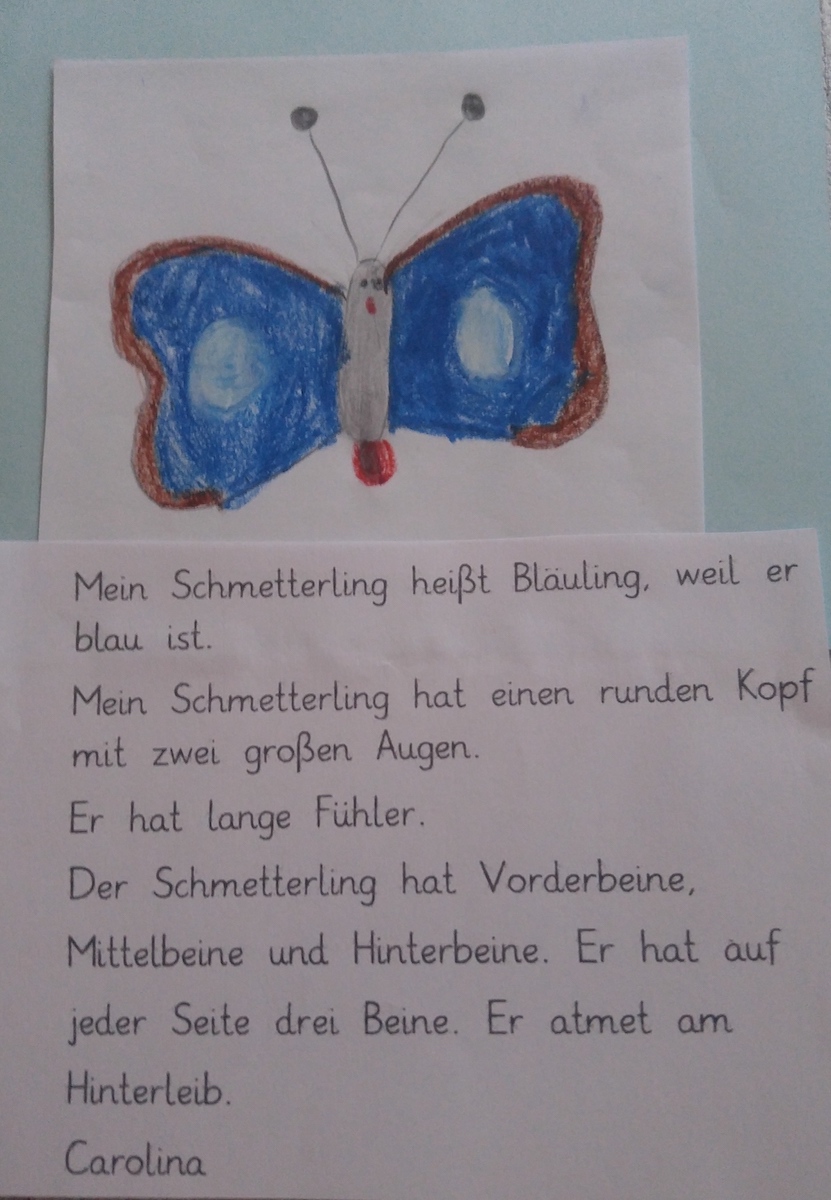 Mein Schmetterling heißt Bläuling, weil er
blau ist.
Mein Schmetterling hat einen runden Kopf
mit zwei großen Augen.
Er hat lange Fühler.
Der Schmetterling hat Vorderbeine,
Mittelbeine und Hinterbeine. Er hat auf
jeder Seite drei Beine. Er atmet am
Hinterleib.
Carolina